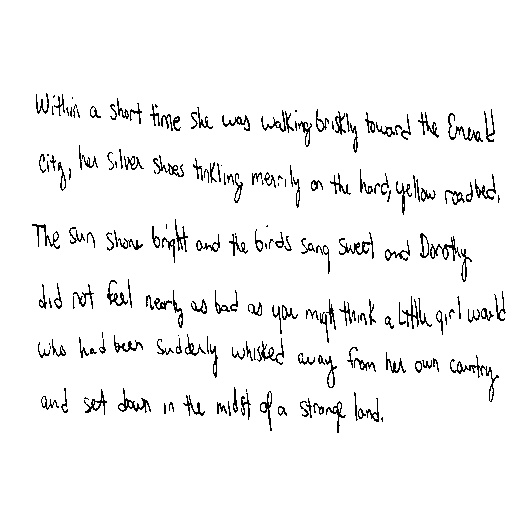 Within a short time she was walking briskly toward the Emerald
City, her Silver Shoes tinkling merrily on the hard, yellow roadbed.
The sun shone bright and the birds sang sweet and Dorothy
did not feel nearly as bad as you might think a little girl would
who had been suddenly whisked away from her own country
and set down in the midst of a strange land.